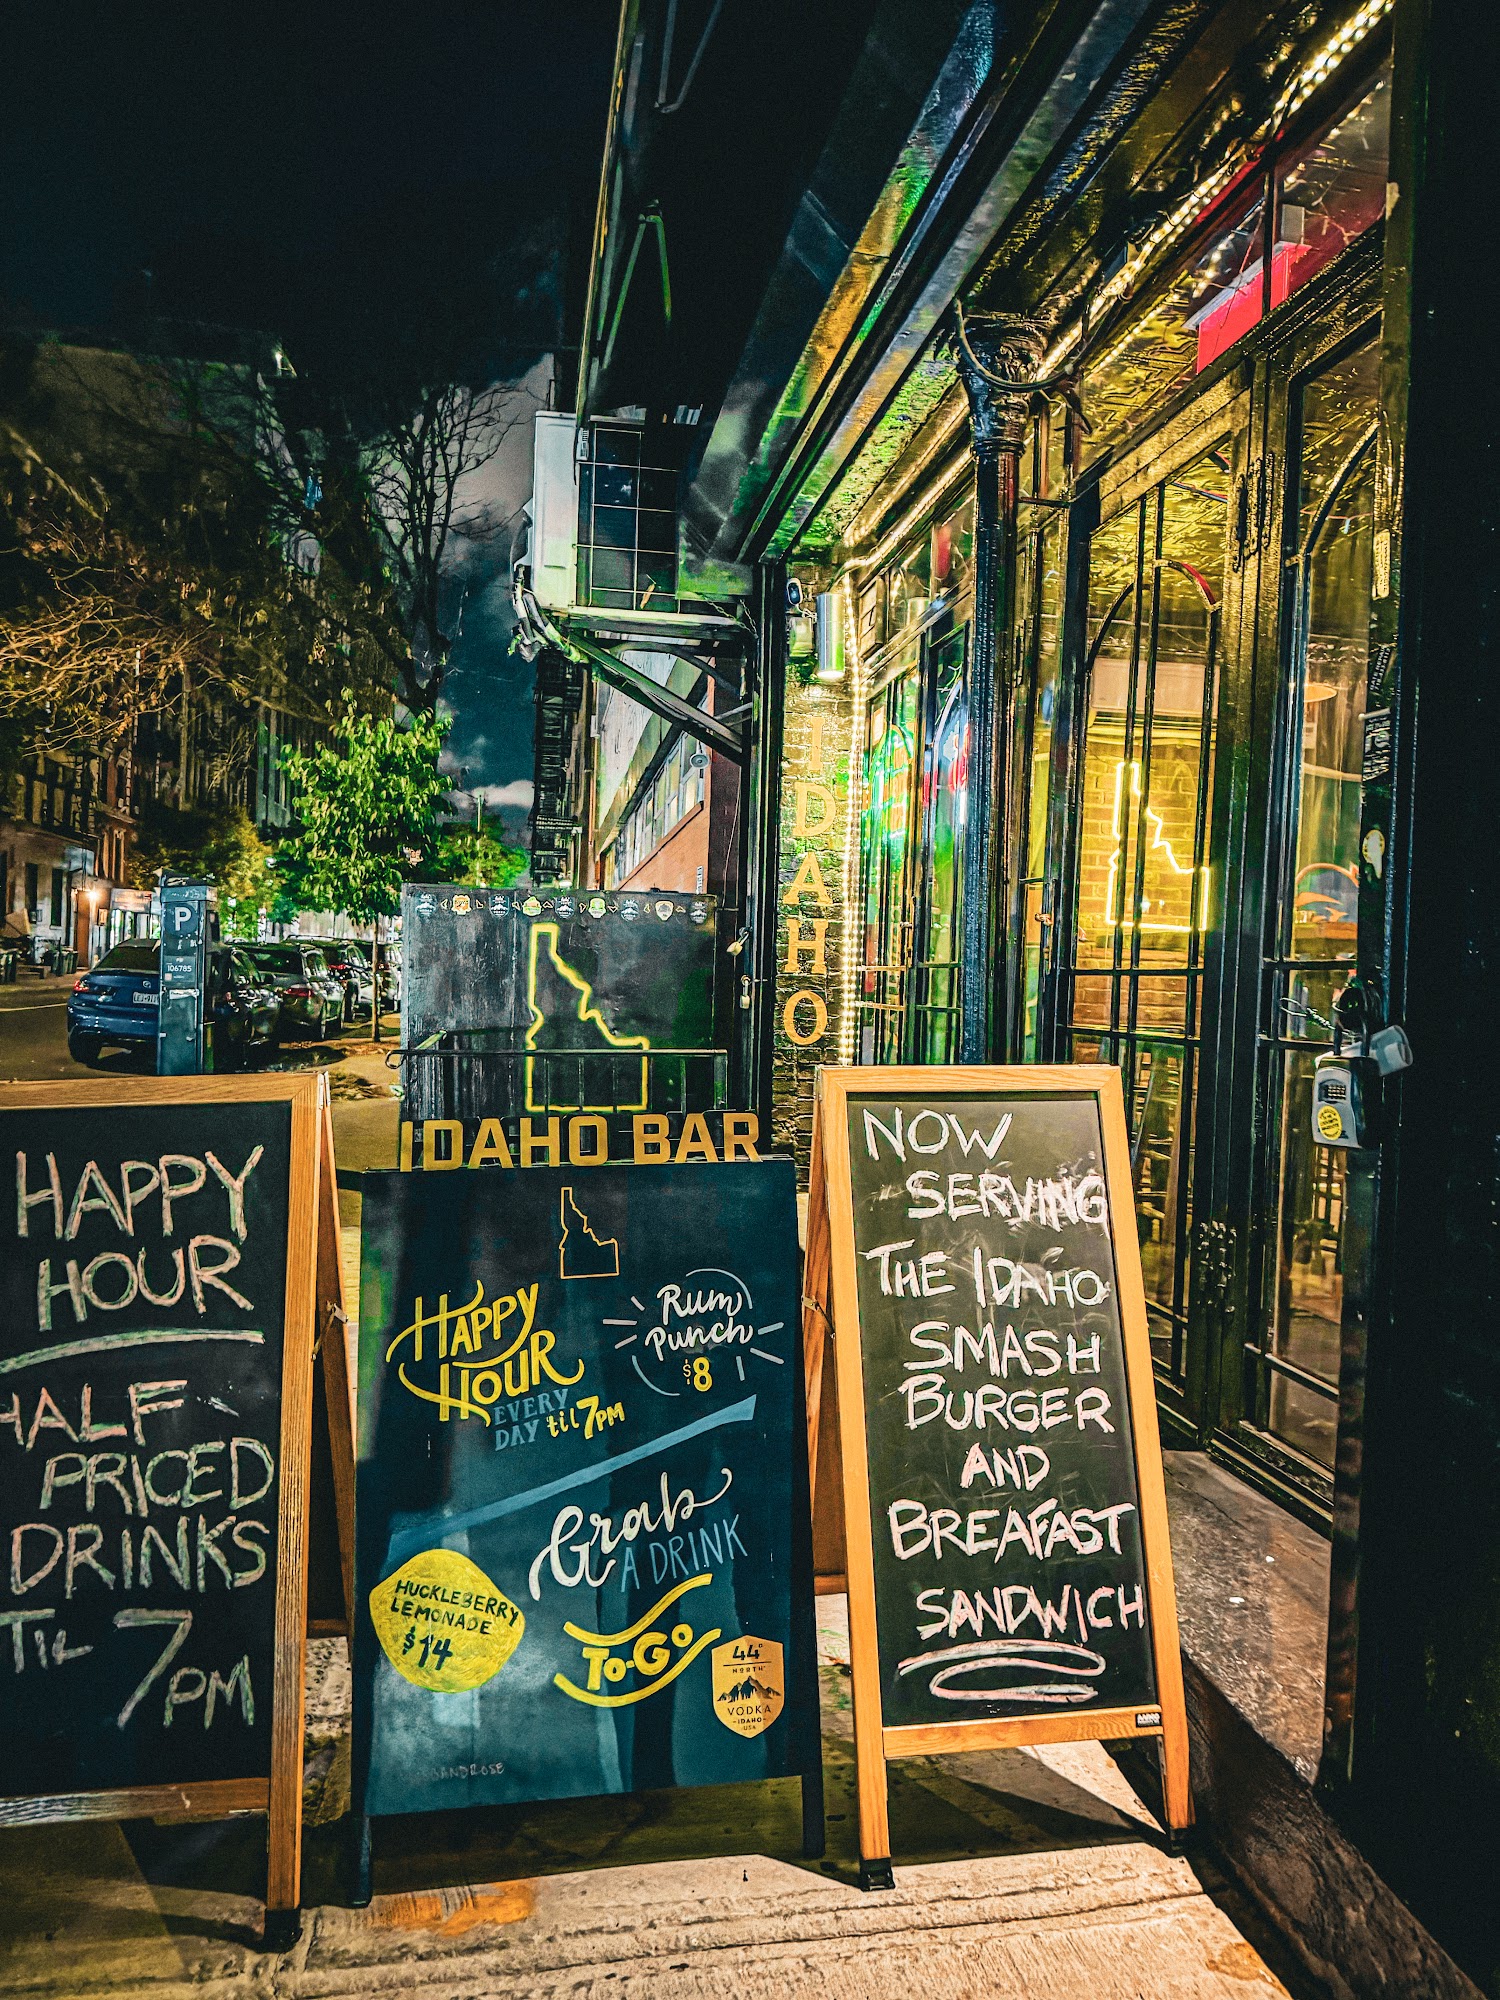 P
106785
IDAHO
HAPPY
HOUR
HALF
PRICED
DRINKS
TIL 7PM
IDAHO BAR
HAPPY
HOUR
EVERY
DAY til 7PM
Rum
Punch
$8
Grab
A DRINK
TO-GO
HUCKLEBERRY
LEMONADE
$14
44°
NORTH
VODKA
-IDAHO-
USA
NOW
SERVING
THE IDAHO
SMASH
BURGER
AND
BREAFAST
SANDWICH